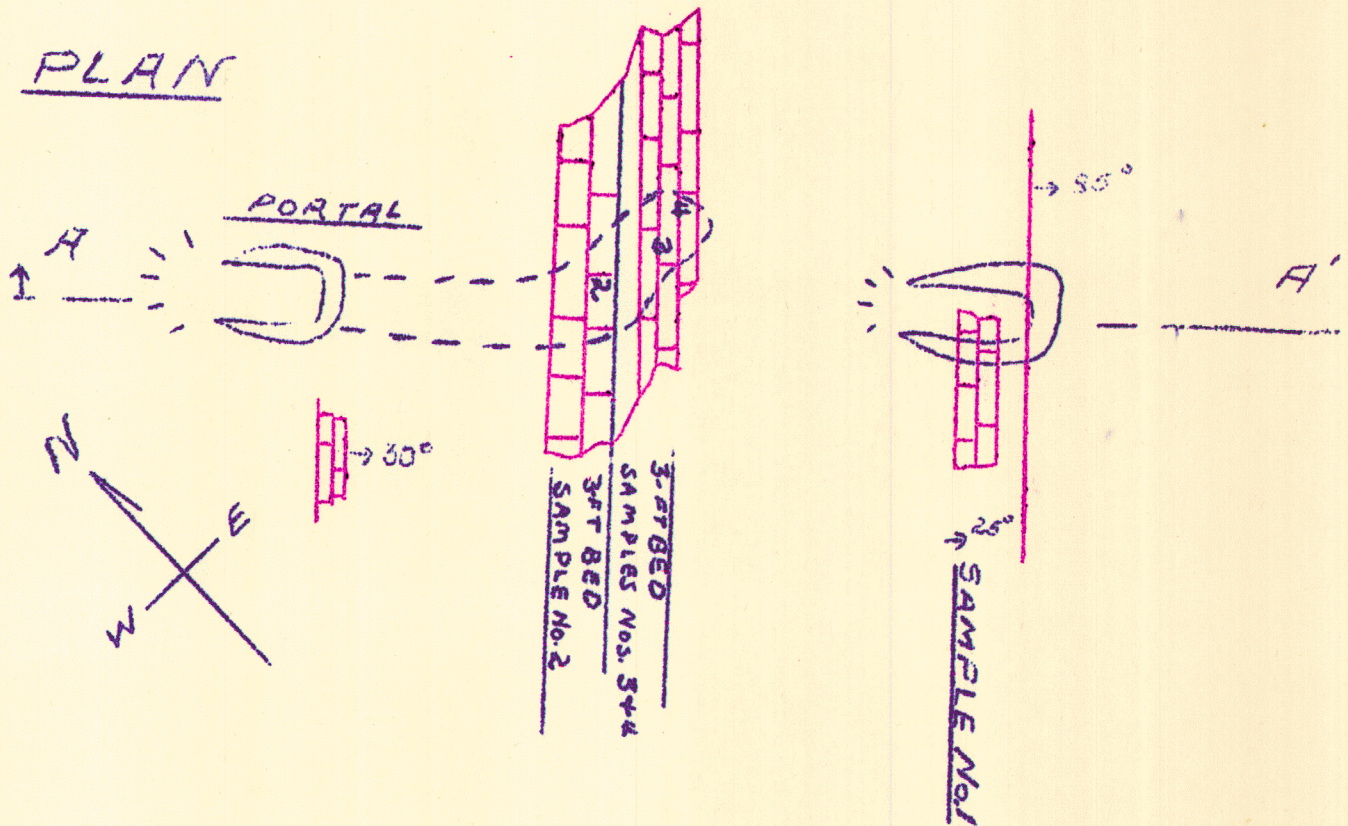 PLAN
PORTAL
A
A'
→ 85°
→ 30°
2
3
4
N
E
W
3-FT BED
SAMPLES NOS. 3+4
3 FT BED
SAMPLE No. 2
→ 25°
SAMPLE No. 1